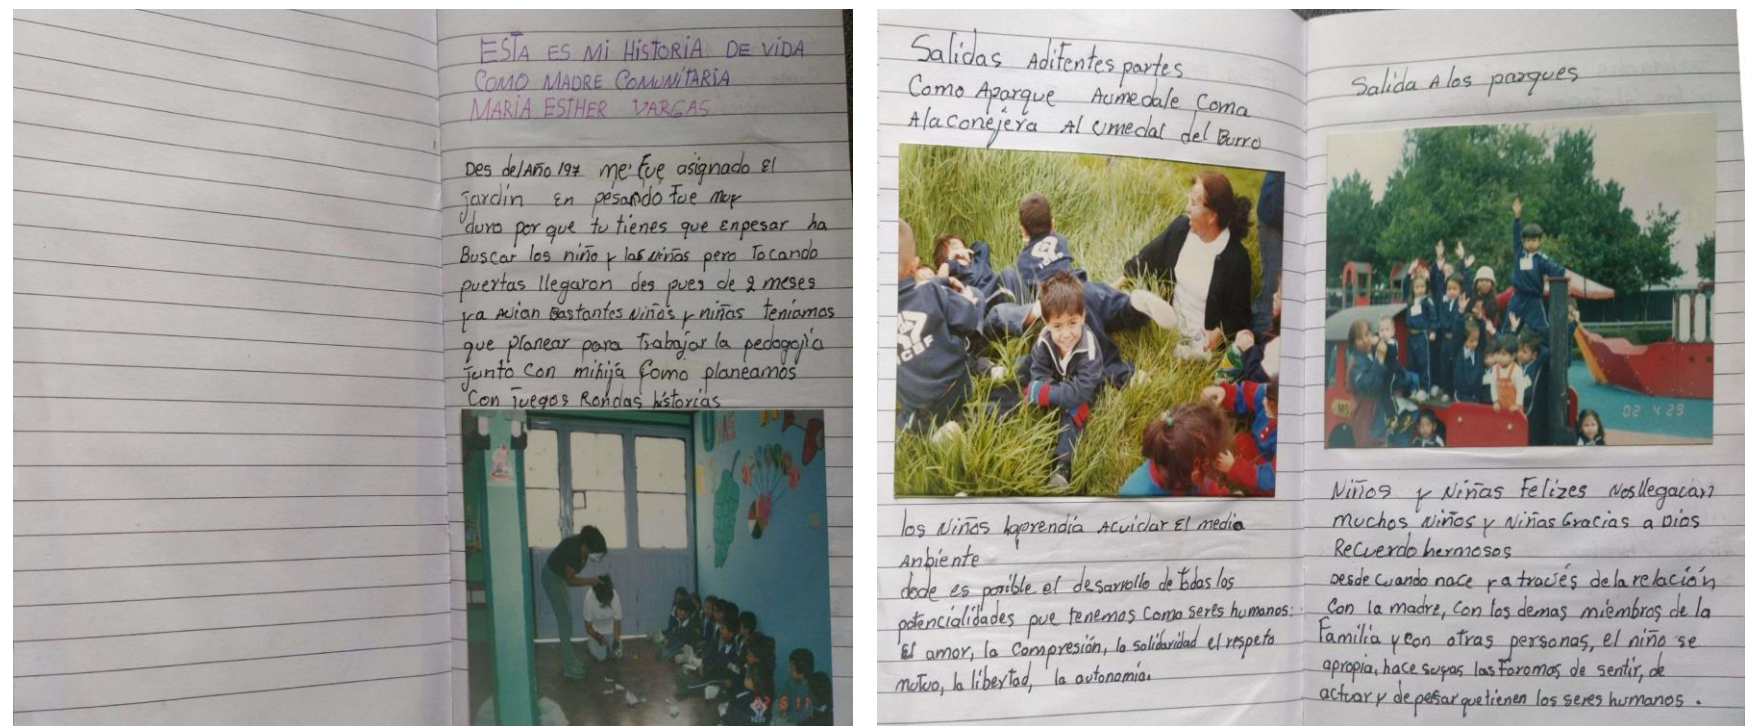 ESTA ES Mi HisTORiA DE ViDA
COMO MADRE COMUNiTARIA
MARIA ESTHER VARGAS
Des del Año 197 me fue asignado El
jardin En pesando fue muy
duro por que tu tienes que Enpesar ha
Buscar los niño y las niñas pero Tocando
puertas llegaron des pues de 2 meses
ya Avian Bastantes Niños y niñas teniamos
que planear para Trabajar la pedagojia
junto con mihija Como planeamos
Con juegos Rondas historias
02 6 11
Salidas Aditentes partes
Como Aparque Aumedale Coma
Ala Conejera Al umedal del Burro
ICEF
los Niños haprendia Acuidar El medio
Anbiente
dode es posible el desarrollo de todas las
potencialidades que tenemos como seres humanos:
El amor, la compresión, la solidaridad el respeto
mutuo, la libertad, la autonomía.
Salida A los parques
02 4 29
Niños y Niñas Felizes Nos llegacan
muchos Niños y Niñas Gracias a Dios
Recuerdo hermosos
Desde cuando nace y a tracies de la relación,
Con la madre, con los demas miembros de la
Familia y con otras personas, el niño se
apropia, hace suyas las foromos de sentir, de
actuar y de pesar que tienen los seres humanos.